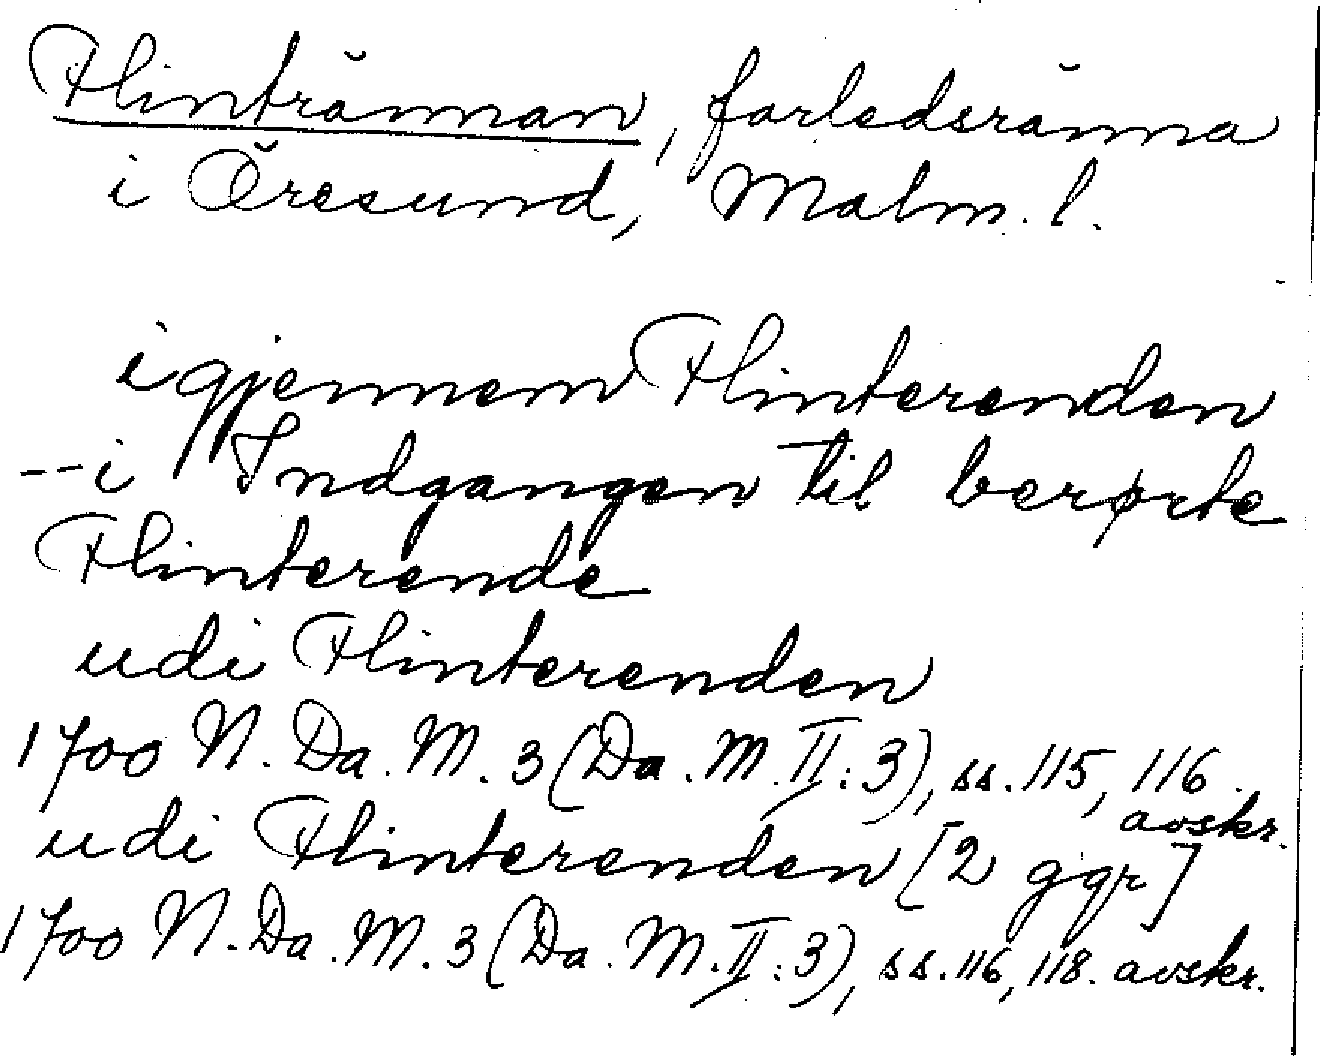 Flintrännan, farledsränna
i Öresund, Malm. l.
igjennem Flinterenden
-- i Indgangen til berørte
Flinterende
udi Flinterenden
1700 N. Da. M. 3 (Da. M. II: 3), ss. 115, 116.
avskr.
udi Flinterenden [2 ggr]
1700 N. Da. M. 3 (Da. M. II: 3), ss. 116, 118. avskr.